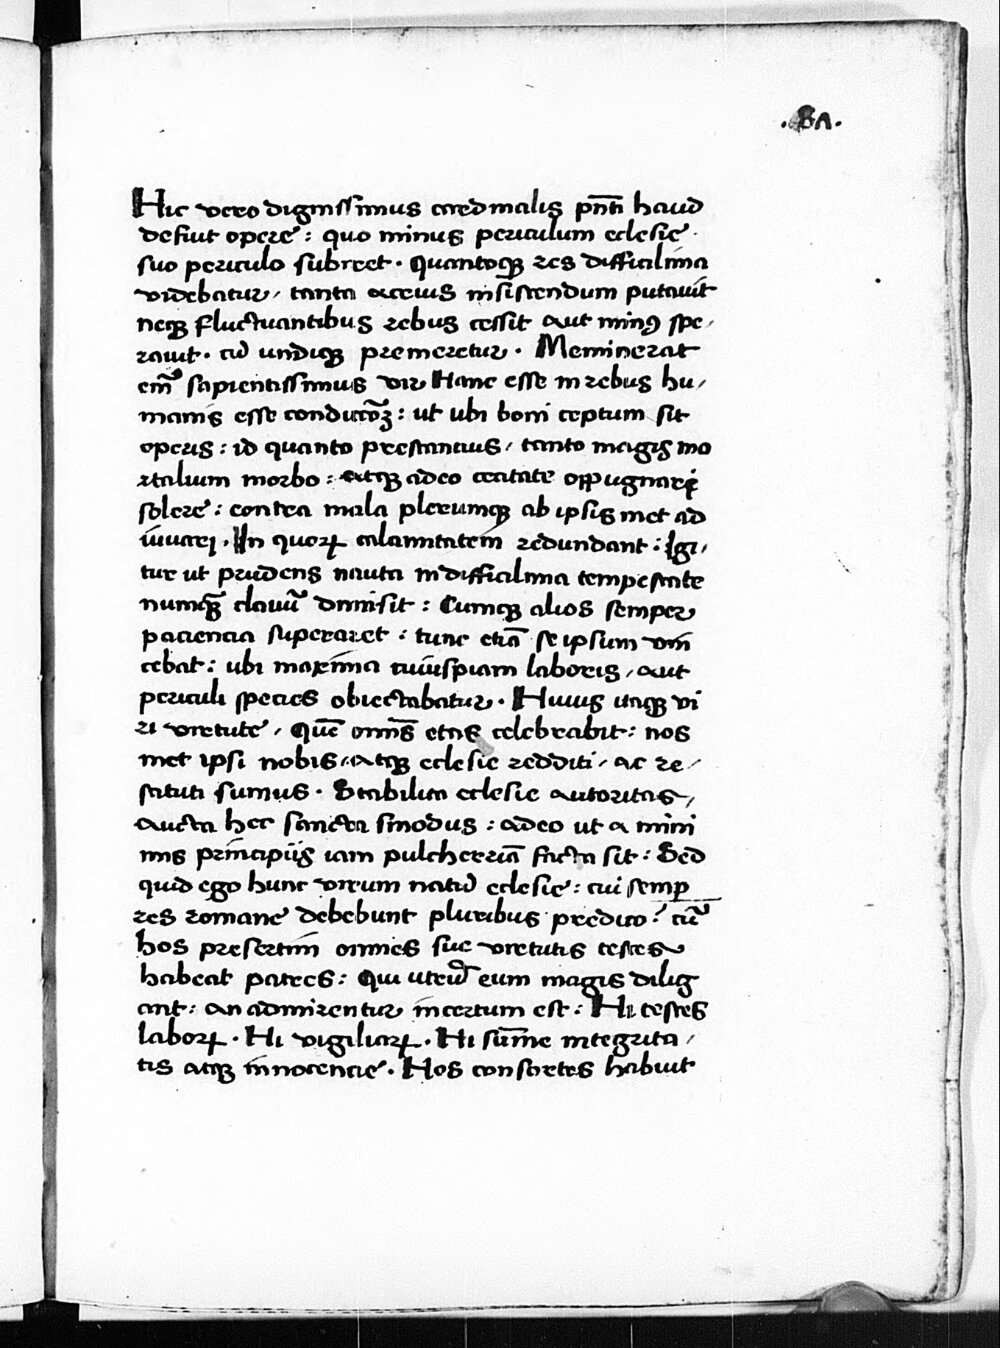 .81.
Hic vero dignissimus cardinalis pñti haud
defuit opere : quo minus periculum eclesie
suo periculo subiret . quantoqꝫ res difficilima
videbatur / tanta acrius insistendum putavit
neqꝫ fluctuantibus rebus cessit aut minꝰ spe /
ravit . cū undiqꝫ premeretur . Meminerat
em̄ sapientissimus vir Hanc esse in rebus hu /
manis esse conditōꝫ : ut ubi boni ceptum sit
operis : id quanto prestantius / tanto magis mo
rtalium morbo : atqꝫ adeo cecitate oppugnari
solere : contra mala plerumqꝫ ab ipsis met ad
iuvari . In quoꝝ calamitatem redundant : Igi /
tur ut prudens nauta in difficilima tempestate
numqꝫ clavū dimisit : Cumqꝫ alios semper
paciencia superaret : tunc etiā se ipsum vin
cebat : ubi maxima cuiuspiam laboris / aut
periculi species obiectabatur . Huius itaqꝫ vi
ri virtute / quē omīs etas celebrabit : nos
met ipsi nobis / atqꝫ eclesie redditi / ac re /
stituti sumus . Stabilita eclesie autoritas /
aucta hec sancta sinodus : adeo ut a mini
mis principiis iam pulcherriā facta sit : Sed
quid ego hunc virum natū eclesie : cui semp
res romane debebunt pluribus predico ? cū
hos presertim omnes sue virtutis testes
habeat patres : Qui utrū eum magis dilig
ant : an admirentur incertum est : Hi testes
laboꝝ . Hi vigiliaꝝ . Hi sum̄e integrita /
tis atqꝫ innocencie . Hos consortes habuit